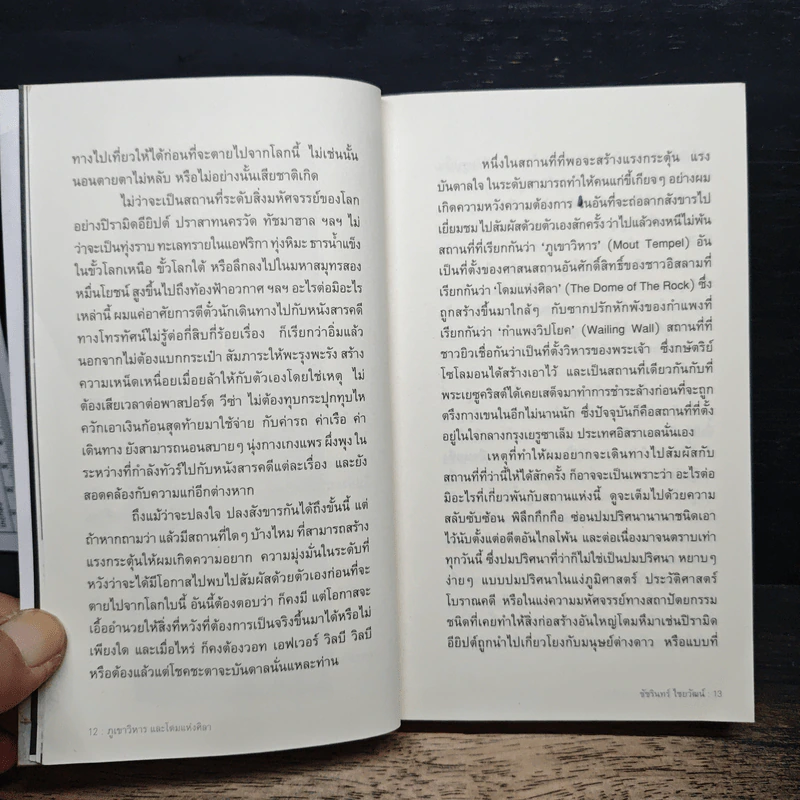 ทางไปเที่ยวให้ได้ก่อนที่จะตายไปจากโลกนี้ ไม่เช่นนั้น
นอนตายตาไม่หลับ หรือไม่อย่างนั้นเสียชาติเกิด
ไม่ว่าจะเป็นสถานที่ระดับสิ่งมหัศจรรย์ของโลก
อย่างปิรามิดอียิปต์ ปราสาทนครวัด ทัชมาฮาล ฯลฯ ไม่
ว่าจะเป็นทุ่งราบ ทะเลทรายในแอฟริกา ทุ่งหิมะ ธารน้ำแข็ง
ในขั้วโลกเหนือ ขั้วโลกใต้ หรือลึกลงไปในมหาสมุทรสอง
หมื่นโยชน์ สูงขึ้นไปถึงท้องฟ้าอวกาศ ฯลฯ อะไรต่อมิอะไร
เหล่านี้ ผมแค่อาศัยการตีตั๋วนักเดินทางไปกับหนังสารคดี
ทางโทรทัศน์ไม่รู้ต่อกี่สิบกี่ร้อยเรื่อง ก็เรียกว่าอิ่มแล้ว
นอกจากไม่ต้องแบกกระเป๋า สัมภาระให้พะรุงพะรัง สร้าง
ความเหน็ดเหนื่อยเมื่อยล้าให้กับตัวเองโดยใช่เหตุ ไม่
ต้องเสียเวลาต่อพาสปอร์ต วีซ่า ไม่ต้องทุบกระปุกทุบไห
ควักเอาเงินก้อนสุดท้ายมาใช้จ่าย กับค่ารถ ค่าเรือ ค่า
เดินทาง ยังสามารถนอนสบายๆ นุ่งกางเกงแพร ผึ่งพุง ใน
ระหว่างที่กำลังทัวร์ไปกับหนังสารคดีแต่ละเรื่อง และยัง
สอดคล้องกับความแก่อีกต่างหาก
ถึงแม้ว่าจะปลงใจ ปลงสังขารกันได้ถึงขั้นนี้ แต่
ถ้าหากถามว่า แล้วมีสถานที่ใดๆ บ้างไหม ที่สามารถสร้าง
แรงกระตุ้นให้ผมเกิดความอยาก ความมุ่งมั่นในระดับที่
หวังว่าจะได้มีโอกาสไปพบไปสัมผัสด้วยตัวเองก่อนที่จะ
ตายไปจากโลกใบนี้ อันนี้ต้องตอบว่า ก็คงมี แต่โอกาสจะ
เอื้ออำนวยให้สิ่งที่หวังที่ต้องการเป็นจริงขึ้นมาได้หรือไม่
เพียงใด และเมื่อไหร่ ก็คงต้องวอท เอฟเวอร์ วิลบี วิลบี
หรือต้องแล้วแต่โชคชะตาจะบันดาลนั่นแหละท่าน
12 : ภูเขาวิหาร และโดมแห่งศิลา
หนึ่งในสถานที่ที่พอจะสร้างแรงกระตุ้น แรง
บันดาลใจ ในระดับสามารถทำให้คนแก่ขี้เกียจๆ อย่างผม
เกิดความหวังความต้องการ ในอันที่จะถ่อลากสังขารไป
เยี่ยมชม ไปสัมผัสด้วยตัวเองสักครั้ง ว่าไปแล้วคงหนีไม่พ้น
สถานที่ที่เรียกกันว่า 'ภูเขาวิหาร' (Mout Tempel) อัน
เป็นที่ตั้งของศาสนสถานอันศักดิ์สิทธิ์ของชาวอิสลามที่
เรียกกันว่า 'โดมแห่งศิลา' (The Dome of The Rock) ซึ่ง
ถูกสร้างขึ้นมาใกล้ๆ กับซากปรักหักพังของกำแพงที่
เรียกกันว่า 'กำแพงวิปโยค' (Wailing Wall) สถานที่ที่
ชาวยิวเชื่อกันว่าเป็นที่ตั้งวิหารของพระเจ้า ซึ่งกษัตริย์
โซโลมอนได้สร้างเอาไว้ และเป็นสถานที่เดียวกันกับที่
พระเยซูคริสต์ได้เคยเสด็จมาทำการชำระล้างก่อนที่จะถูก
ตรึงกางเขนในอีกไม่นานนัก ซึ่งปัจจุบันก็คือสถานที่ที่ตั้ง
อยู่ในใจกลางกรุงเยรูซาเล็ม ประเทศอิสราเอลนั่นเอง
เหตุที่ทำให้ผมอยากจะเดินทางไปสัมผัสกับ
สถานที่ที่ว่านี้ให้ได้สักครั้ง ก็อาจจะเป็นเพราะว่า อะไรต่อ
มิอะไรที่เกี่ยวพันกับสถานแห่งนี้ ดูจะเต็มไปด้วยความ
สลับซับซ้อน พิลึกกึกกือ ซ่อนปมปริศนานานาชนิดเอา
ไว้นับตั้งแต่อดีตอันไกลโพ้น และต่อเนื่องมาจนตราบเท่า
ทุกวันนี้ ซึ่งปมปริศนาที่ว่าก็ไม่ใช่เป็นปมปริศนา หยาบๆ
ง่ายๆ แบบปมปริศนาในแง่ภูมิศาสตร์ ประวัติศาสตร์
โบราณคดี หรือในแง่ความมหัศจรรย์ทางสถาปัตยกรรม
ชนิดที่เคยทำให้สิ่งก่อสร้างอันใหญ่โตมหึมาเช่นปิรามิด
อียิปต์ถูกนำไปเกี่ยวโยงกับมนุษย์ต่างดาว หรือแบบที่
ชัชรินทร์ ไชยวัฒน์ : 13